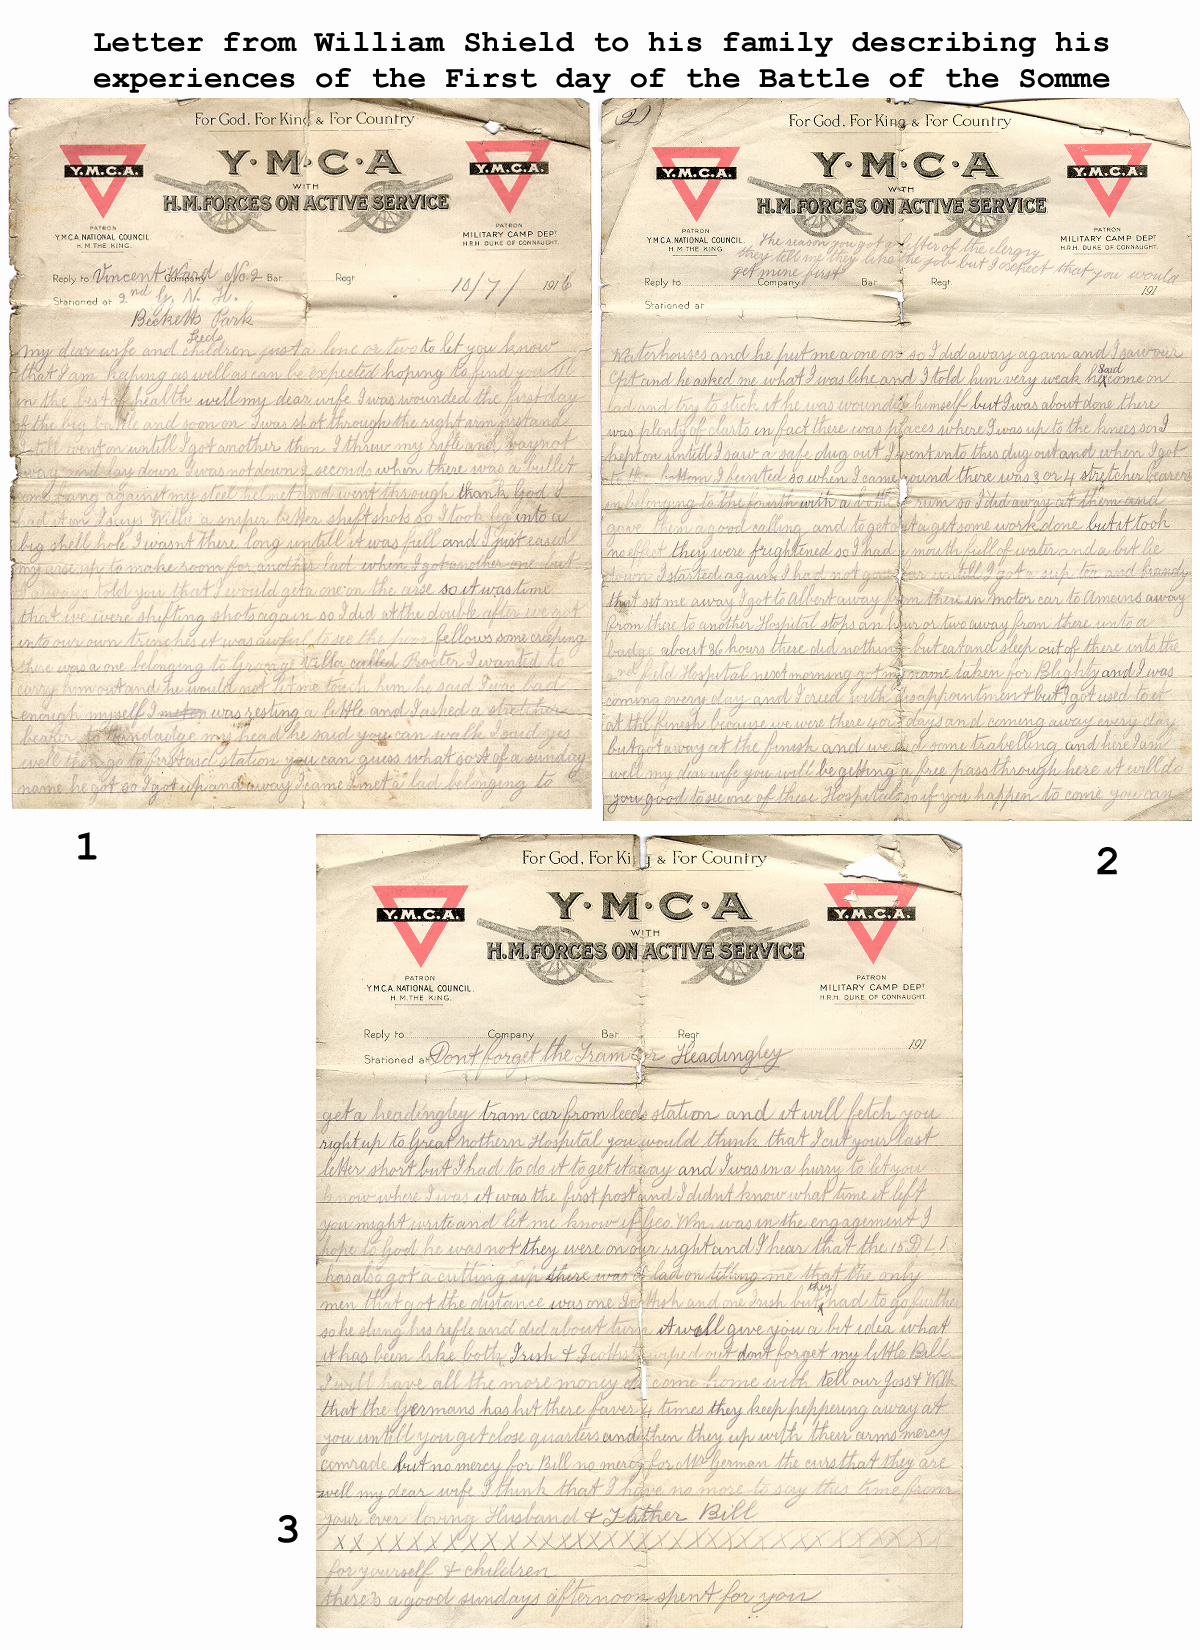 Letter from William Shield to his family describing his
experiences of the First day of the Battle of the Somme
For God, For King & For Country
Y.M.C.A.
Y·M·C·A
WITH
H.M.FORCES ON ACTIVE SERVICE
Y.M.C.A.
PATRON
Y.M.C.A. NATIONAL COUNCIL.
H.M. THE KING.
PATRON
MILITARY CAMP DEPT
H.R.H. DUKE OF CONNAUGHT.
Reply to Vincent Ward Company No.2 Bat. Regt. 10/7/ 1916
Stationed at 2nd G. N. H.
Becketts Park
Leeds
my dear wife and children just a line or two to let you know
that I am keping as well as can be expected hoping to find you all
in the best of health well my dear wife I was wounded the first day
of the big battle and soon on I was shot through the right arm first and
I still went on untill I got another then I threw my rifle and
and lay down I was not down 2 seconds when there was a bullet
came bang against my steel helmet and went through thank God I
had it on I says Willie a sniper better shift shots so I took leg into a
big shell hole I wasnt there long untill it was full and I just eased
my arse up to make room for another lad when I got another one but
I always told you that I would get a one on the arse so it was time
that we were shifting shots again so I did at the double after we got
into our own trenches it was awful to see the poor fellows some creeping
there was a one belonging to Grange Villa called Procter I wanted to
carry him out and he would not let me touch him he said I was bad
enough myself I was resting a little and I asked a stretcher
bearer to bandadge my head he said you can walk I said yes
well then go to first aid station you can guess what sort of a sunday
name he got so I got up and away I came I met a lad belonging to
1
2)
For God, For King & For Country
Y.M.C.A.
Y·M·C·A
WITH
H.M.FORCES ON ACTIVE SERVICE
Y.M.C.A.
PATRON
Y.M.C.A. NATIONAL COUNCIL.
H.M. THE KING.
PATRON
MILITARY CAMP DEPT
H.R.H. DUKE OF CONNAUGHT.
The reason you got a letter of the clergy
they tell me they like the job but I expect that you would
get mine first
Reply to Company Bat. Regt. 191
Stationed at
Waterhouses and he put me a one on so I did away again and I saw our
Cpt and he asked me what I was like and I told him very weak he said come on
lad and try to stick it he was wounded himself but I was about done there
was plenty of clarts in fact there was places where I was up to the knees so I
kept on untill I saw a safe dug out I went into this dug out and when I got
to the bottom I fented so when I came round there was 3 or 4 stretcher bearers
in belonging to the fourth with a bottle rum so I did away at them and
gave them a good calling and to get out a get some work done but it took
no effect they were frightened so I had a mouth full of water and a bit lie
down I started again I had not gone far untill I got a sup tea and brandy
that set me away I got to Albert away from there in motor car to Ameins away
from there to another Hospital stops an hour or two away from there into a
badge about 36 hours there did nothing but eat and sleep out of there into the
2nd field Hospital next morning got my name taken for Blighty and I was
coming every day and I cried with disappointment but I got used to it
at the finish because we were there 4 or 5 days and coming away every day
but got away at the finish and we did some travelling and here I am
well my dear wife you will be getting a free pass through here it will do
you good to see one of these Hospitals so if you happen to come you can
2
For God, For King & For Country
Y.M.C.A.
Y·M·C·A
WITH
H.M.FORCES ON ACTIVE SERVICE
Y.M.C.A.
PATRON
Y.M.C.A. NATIONAL COUNCIL.
H.M. THE KING.
PATRON
MILITARY CAMP DEPT
H.R.H. DUKE OF CONNAUGHT.
Reply to Company Bat. Regt. 191
Stationed at Dont forget the Tram car Headingley
get a headingley tram car from leeds station and it will fetch you
right up to Great nothern Hospital you would think that I cut your last
letter short but I had to do it to get it away and I was in a hurry to let you
know where I was it was the first post and I didnt know what time it left
you might write and let me know if Geo. Wm. was in the engagement I
hope to God he was not they were on our right and I hear that the 15 D L I
has also got a cutting up there was a lad on telling me that the only
men that got the distance was one Scottish and one Irish but they had to go further
so he slung his refle and did about turn it well give you a bit idea what
it has been like both Irish & Scottish wiped out dont forget my little Bill
I will have all the more money to come home with tell our Joss & Wilk
that the Germans has hit there faver 4 times they keep peppering away at
you untill you get close quarters and then they up with their arms mercy
comrade but no mercy for Bill no mercy for Mr German the curs that they are
well my dear wife I think that I have no more to say this time from
your ever loving Husband & Father Bill
x x x x x x x x x x x x x x x x x x x x x x x x x x x x x x
for yourself & children
there's a good sundays afternoon spent for you
3